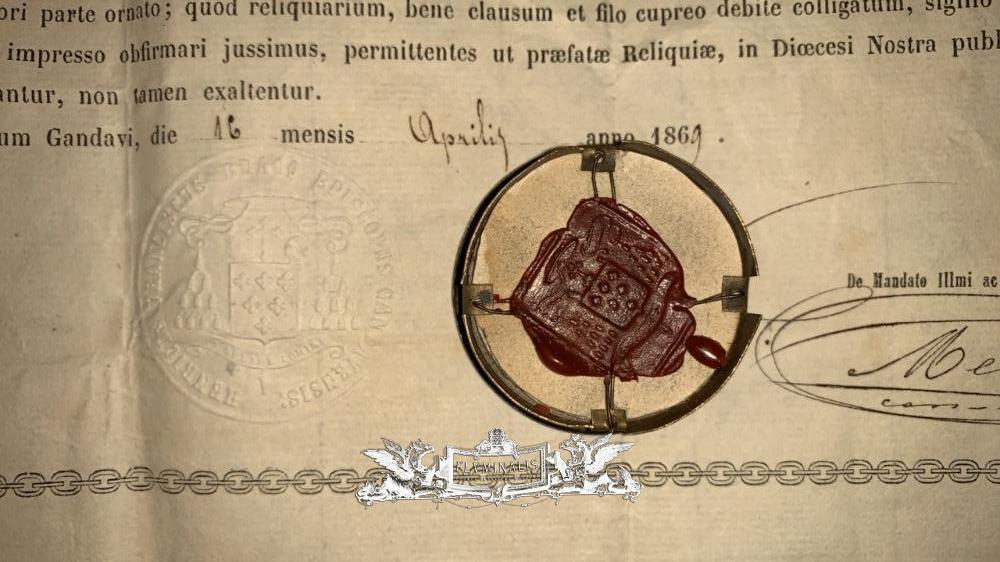 ori parte ornato; quod reliquiarium, bene clausum et filo cupreo debite colligatum, sigillo
impresso obfirmari jussimus, permittentes ut præfatæ Reliquiæ, in Diœcesi Nostra publ
antur, non tamen exaltentur.
um Gandavi, die 16 mensis Aprilis anno 1869.
HENRICUS FRANCISCUS BRACQ EPISCOPUS GANDAVENSIS
De Mandato Illmi ac
FLAMINALIS